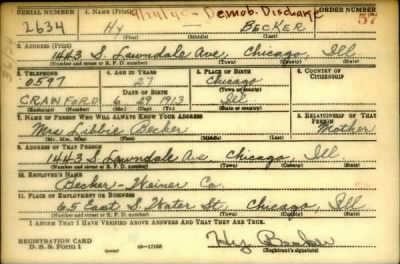 SERIAL NUMBER 1. NAME (Print) 9/24/45 - Demob. Discharge ORDER NUMBER
2634 Hy BECKER 57
(First) (Middle) (Last)
2. ADDRESS (Print)
1443 S. Lawndale Ave, Chicago, Ill.
(Number and street or R. F. D. number) (Town) (County) (State)
3. TELEPHONE 4. AGE IN YEARS 5. PLACE OF BIRTH 6. COUNTRY OF CITIZENSHIP
0597 27 Chicago
DATE OF BIRTH (Town or county)
CRAWFORD 6 29 1913 Ill
(Exchange) (Number) (Mo.) (Day) (Yr.) (State or country)
7. NAME OF PERSON WHO WILL ALWAYS KNOW YOUR ADDRESS 8. RELATIONSHIP OF THAT PERSON
Mrs Libbie Becker Mother
(Mr., Mrs., Miss) (First) (Middle) (Last)
9. ADDRESS OF THAT PERSON
1443 S Lawndale Ave Chicago, Ill.
(Number and street or R. F. D. number) (Town) (County) (State)
10. EMPLOYER'S NAME
Becker-Weiner Co.
11. PLACE OF EMPLOYMENT OR BUSINESS
65 East S. Water St, Chicago, Ill
(Number and street or R. F. D. number) (Town) (County) (State)
I AFFIRM THAT I HAVE VERIFIED ABOVE ANSWERS AND THAT THEY ARE TRUE.
REGISTRATION CARD
D. S. S. Form 1 Hy Becker
(Registrant's signature)